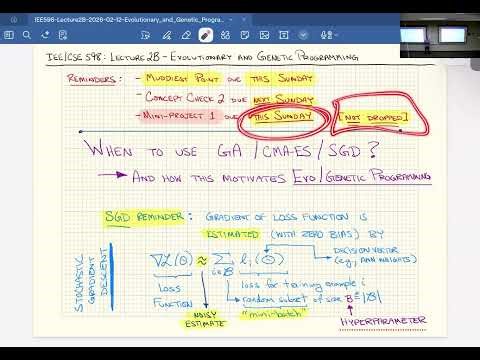 IEE598-Lecture2B-2026-02-12-Evolutionary_and_Genetic_Progra...
IEE/CSE 598: LECTURE 2B - EVOLUTIONARY AND GENETIC PROGRAMMING
REMINDERS: - MUDDIEST POINT DUE THIS SUNDAY
- CONCEPT CHECK 2 DUE NEXT SUNDAY
- MINI-PROJECT 1 DUE THIS SUNDAY [NOT DROPPED]
WHEN TO USE GA / CMA-ES / SGD?
→ AND HOW THIS MOTIVATES EVO/GENETIC PROGRAMMING
SGD REMINDER: GRADIENT OF LOSS FUNCTION IS
ESTIMATED (WITH ZERO BIAS) BY
STOCHASTIC GRADIENT DESCENT
∇L(Θ) ≈ Σ i∈B l_i(Θ)
DECISION VECTOR
(e.g., ANN WEIGHTS)
LOSS FUNCTION
loss for training example i
random subset of size B ≜ |B|
NOISY ESTIMATE
"mini-batch"
HYPERPARAMETER